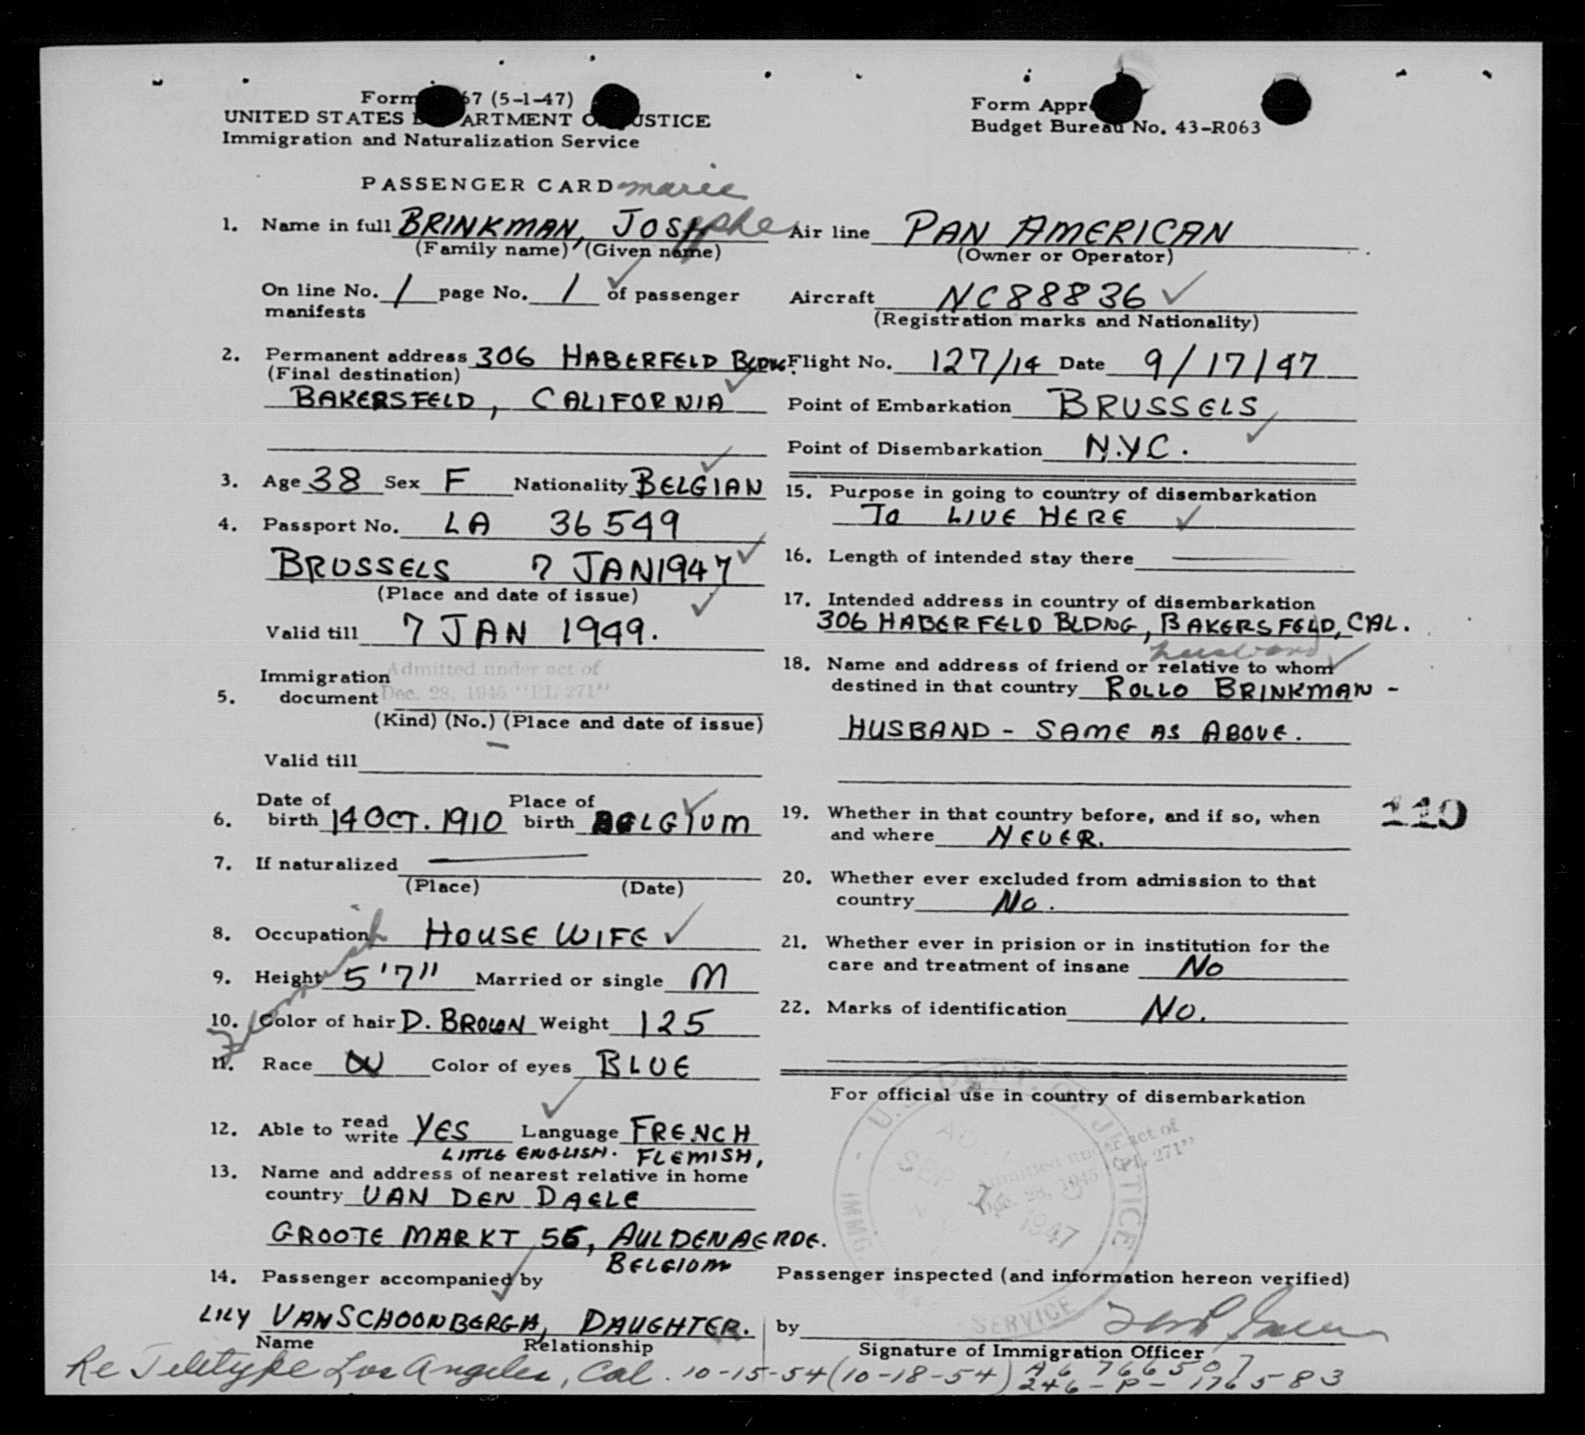 Form 67 (5-1-47)
UNITED STATES DEPARTMENT OF JUSTICE
Immigration and Naturalization Service
Form Appr
Budget Bureau No. 43-R063
PASSENGER CARD marie
1. Name in full BRINKMAN, JOSephe
(Family name) (Given name)
On line No. 1 page No. 1 of passenger
manifests
2. Permanent address 306 HABERFELD BLDNG.
(Final destination)
BAKERSFELD, CALIFORNIA
3. Age 38 Sex F Nationality BELGIAN
4. Passport No. LA 36549
BRUSSELS 7 JAN 1947
(Place and date of issue)
Valid till 7 JAN 1949.
Immigration Admitted under act of
5. document Dec. 28, 1945 "PL 271"
(Kind) (No.) (Place and date of issue)
Valid till
6. Date of birth 14 OCT. 1910 Place of birth BELGIUM
7. If naturalized
(Place) (Date)
8. Occupation HOUSE WIFE
9. Height 5'7" Married or single M
10. Color of hair D. BROWN Weight 125
11. Race W Color of eyes BLUE
Flemish
12. Able to read write YES Language FRENCH
LITTLE ENGLISH. FLEMISH,
13. Name and address of nearest relative in home
country VAN DEN DAELE
GROOTE MARKT 56, AULDENAERDE.
BELGIOM
14. Passenger accompanied by
LILY VANSCHOONBERGH, DAUGHTER.
Name Relationship
Air line PAN AMERICAN
(Owner or Operator)
Aircraft NC88836
(Registration marks and Nationality)
Flight No. 127/14 Date 9/17/47
Point of Embarkation BRUSSELS
Point of Disembarkation N.Y.C.
15. Purpose in going to country of disembarkation
TO LIVE HERE
16. Length of intended stay there
17. Intended address in country of disembarkation
306 HABERFELD BLDNG, BAKERSFELD, CAL.
husband
18. Name and address of friend or relative to whom
destined in that country ROLLO BRINKMAN -
HUSBAND - SAME AS ABOVE.
19. Whether in that country before, and if so, when
and where NEVER.
110
20. Whether ever excluded from admission to that
country No.
21. Whether ever in prision or in institution for the
care and treatment of insane No
22. Marks of identification No.
For official use in country of disembarkation
U.S. DEPT. OF JUSTICE
IMMG.
SERVICE
Admitted under act of
Dec. 28, 1945 "PL 271"
SEP
1947
Passenger inspected (and information hereon verified)
by
Signature of Immigration Officer
Re Teletype Los Angeles, Cal. 10-15-54 (10-18-54) A6 766507
246-P-176583